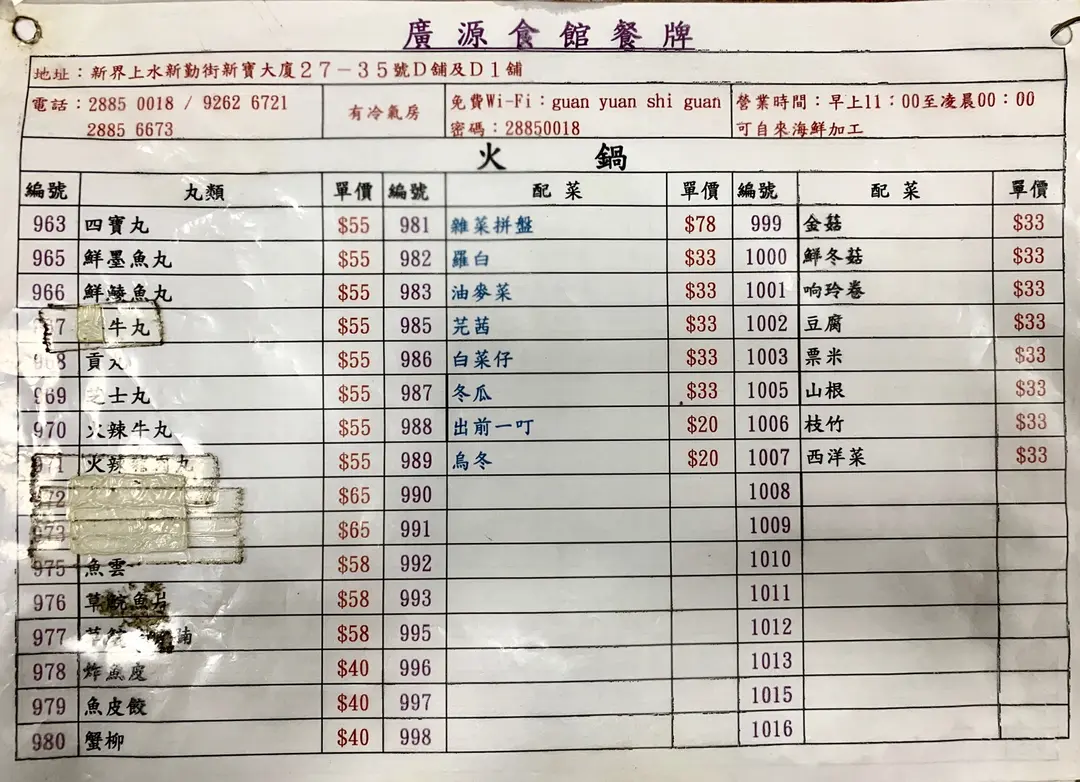 廣源食館餐牌
地址：新界上水新勤街新寶大廈27－35號D舖及D1舖
電話：2885 0018 / 9262 6721
2885 6673
有冷氣房
免費Wi-Fi：guan yuan shi guan
密碼：28850018
營業時間：早上11：00至凌晨00：00
可自來海鮮加工
火 鍋
編號 丸類 單價 編號 配菜 單價 編號 配菜 單價
963 四寶丸 $55 981 雜菜拼盤 $78 999 金菇 $33
965 鮮墨魚丸 $55 982 羅白 $33 1000 鮮冬菇 $33
966 鮮鯪魚丸 $55 983 油麥菜 $33 1001 响玲卷 $33
牛丸 $55 985 芫茜 $33 1002 豆腐 $33
968 貢丸 $55 986 白菜仔 $33 1003 粟米 $33
969 芝士丸 $55 987 冬瓜 $33 1005 山根 $33
970 火辣牛丸 $55 988 出前一叮 $20 1006 枝竹 $33
971 火辣 丸 $55 989 烏冬 $20 1007 西洋菜 $33
$65 990 1008
$65 991 1009
975 魚雲 $58 992 1010
976 草鯇魚片 $58 993 1011
977 $58 995 1012
978 炸魚皮 $40 996 1013
979 魚皮餃 $40 997 1015
980 蟹柳 $40 998 1016